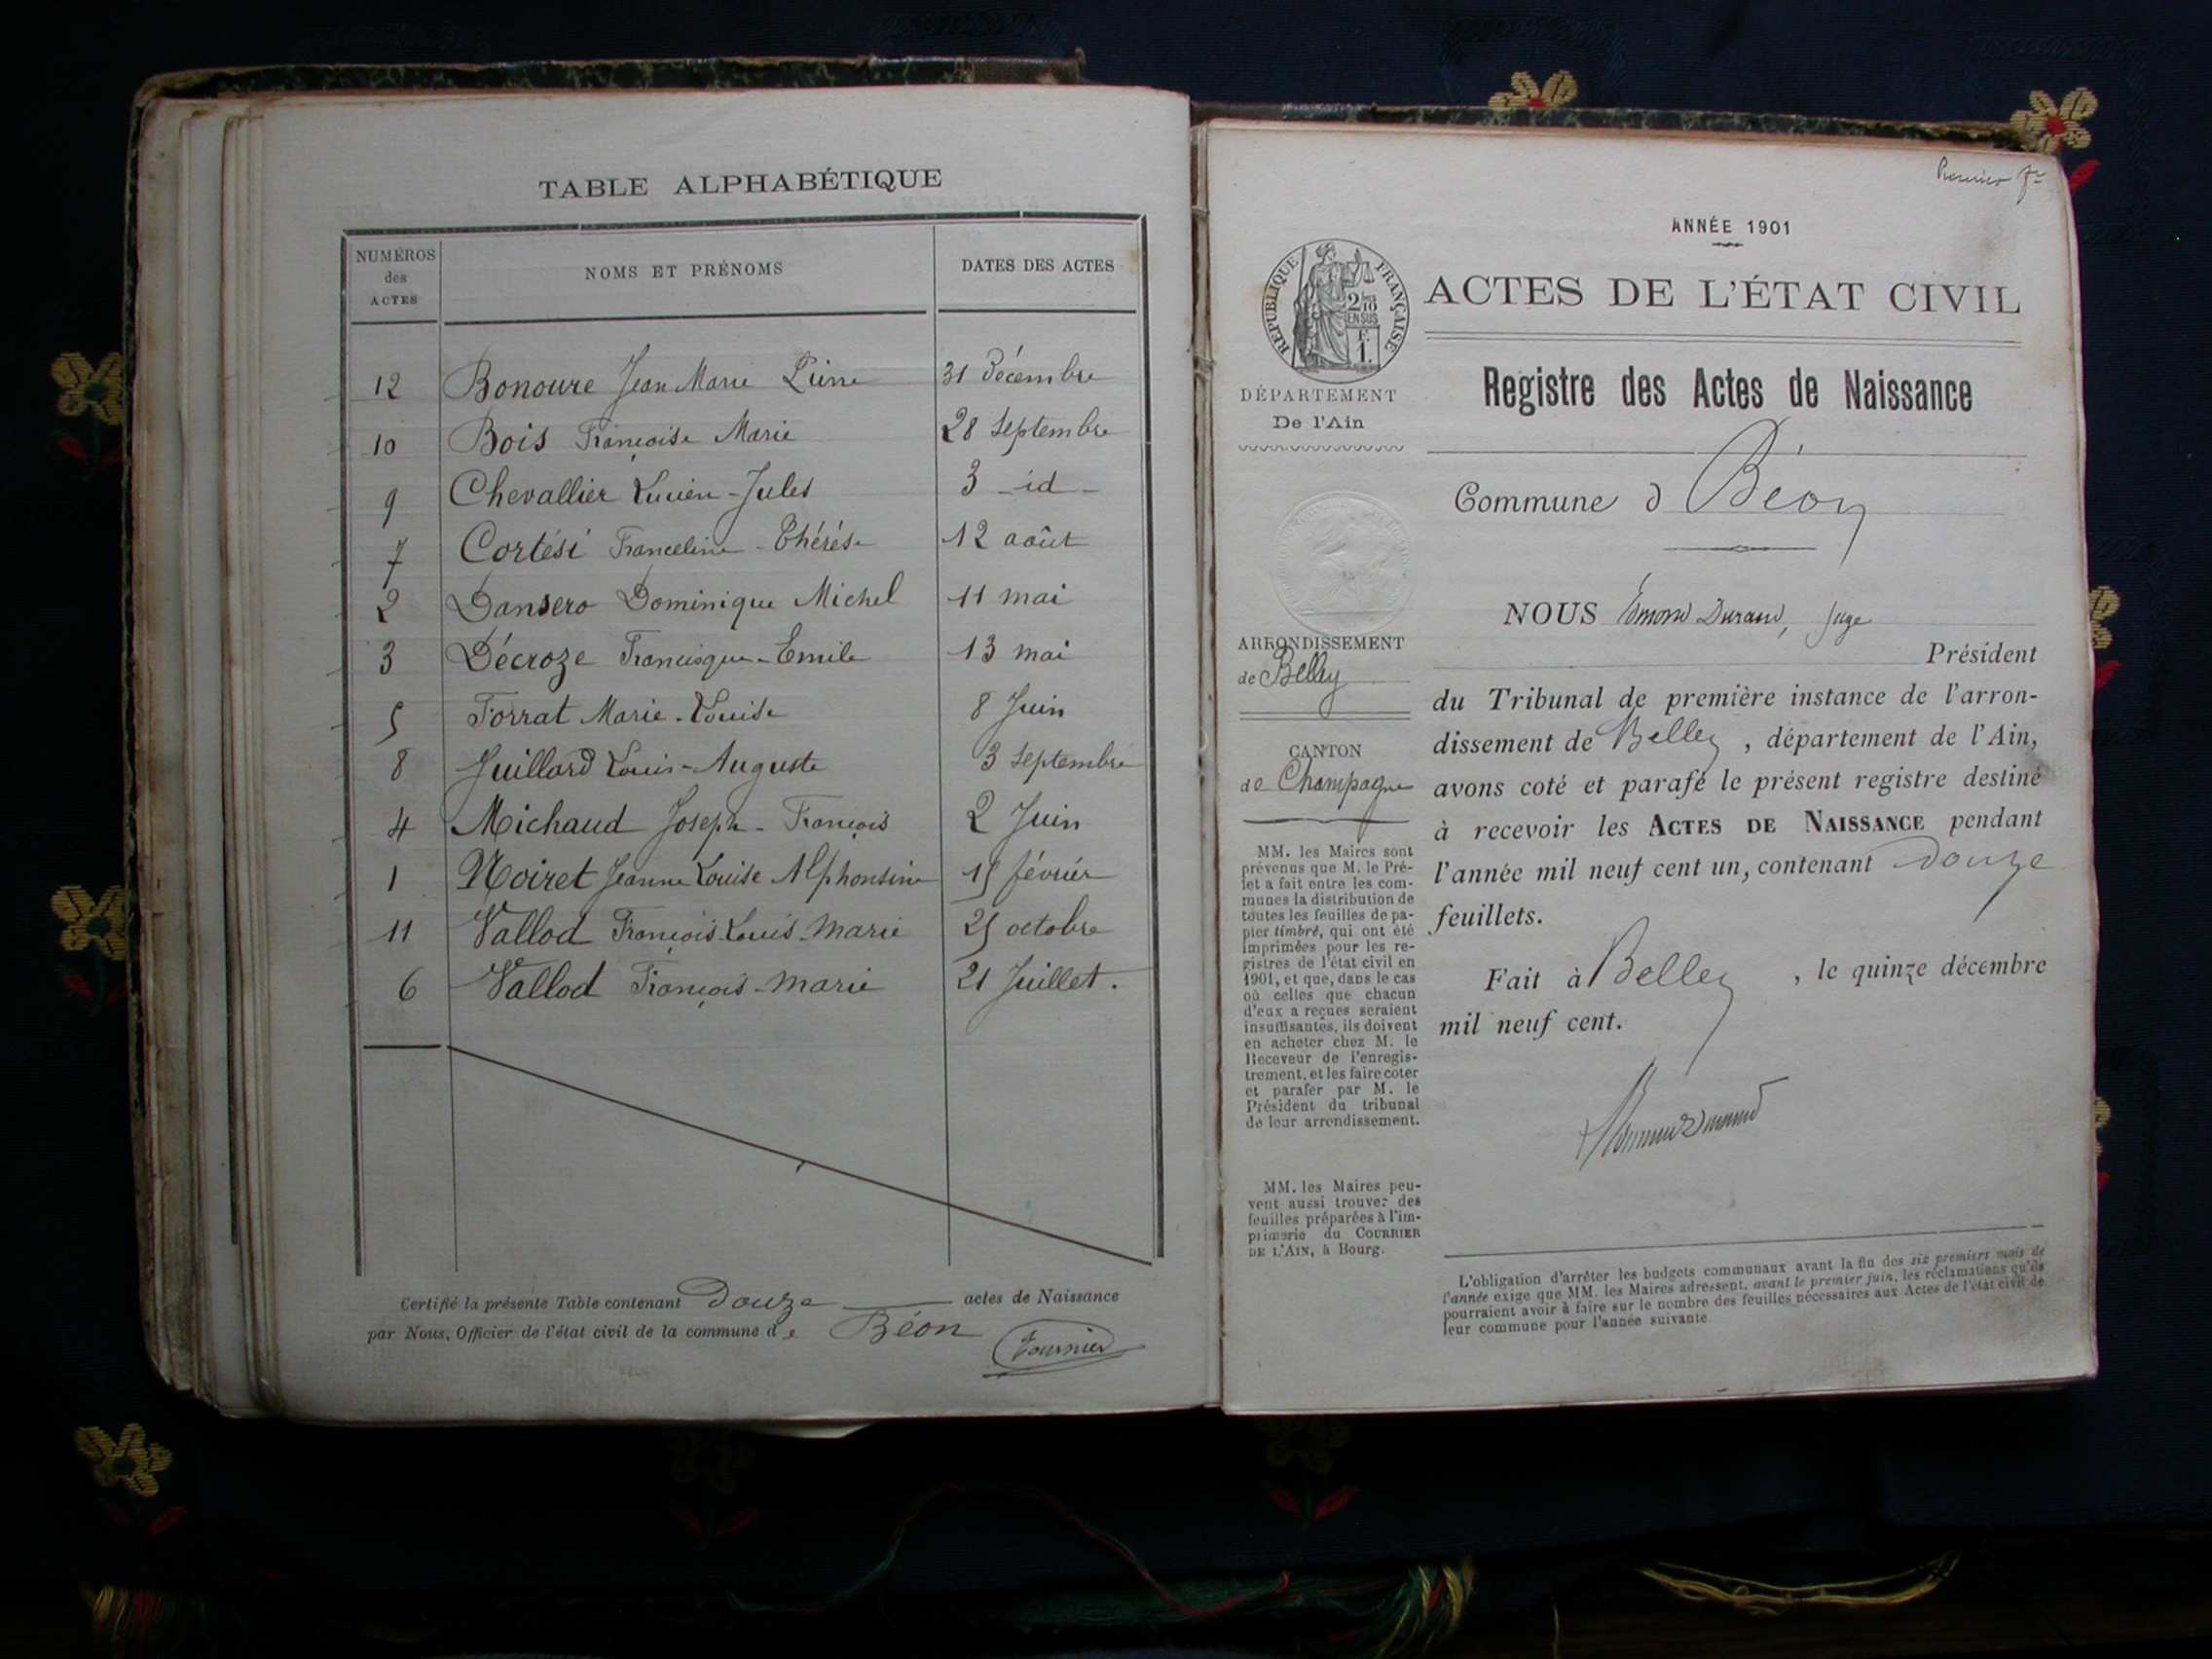 TABLE ALPHABÉTIQUE
NUMÉROS
des
ACTES
NOMS ET PRÉNOMS
DATES DES ACTES
12 Bonoure Jean Marie Pierre 31 Décembre
10 Bois Françoise Marie 28 Septembre
9 Chevallier Lucien-Jules 3 -id-
7 Cortési Franceline-Thérèse 12 août
2 Dansero Dominique Michel 11 mai
3 Décroze Francisque-Emile 13 mai
5 Forrat Marie-Louise 8 Juin
8 Juillard Louis-Auguste 3 Septembre
4 Michaud Joseph-François 2 Juin
1 Noiret Jeanne Louise Alphonsine 15 février
11 Vallod François-Louis-Marie 25 octobre
6 Vallod François-Marie 21 Juillet.
Certifié la présente Table contenant Douze actes de Naissance
par Nous, Officier de l'état civil de la commune de Béon
Fournier
Premier
ANNÉE 1901
RÉPUBLIQUE FRANÇAISE
2/10
EN SUS
F.
1.
ACTES DE L'ÉTAT CIVIL
DÉPARTEMENT
De l'Ain
Registre des Actes de Naissance
Commune d Béon
NOUS Edmond Durand, Juge
Président
ARRONDISSEMENT
de Belley
du Tribunal de première instance de l'arron-
dissement de Belley, département de l'Ain,
avons coté et parafé le présent registre destiné
à recevoir les ACTES DE NAISSANCE pendant
l'année mil neuf cent un, contenant douze
feuillets.
Fait à Belley, le quinze décembre
mil neuf cent.
CANTON
de Champagne
MM. les Maires sont
prévenus que M. le Pré-
fet a fait entre les com-
munes la distribution de
toutes les feuilles de pa-
pier timbré, qui ont été
imprimées pour les re-
gistres de l'état civil en
1901, et que, dans le cas
où celles que chacun
d'eux a reçues seraient
insuffisantes, ils doivent
en acheter chez M. le
Receveur de l'enregis-
trement, et les faire coter
et parafer par M. le
Président du tribunal
de leur arrondissement.
MM. les Maires peu-
vent aussi trouver des
feuilles préparées à l'im-
primerie du COURRIER
DE L'AIN, à Bourg.
L'obligation d'arrêter les budgets communaux avant la fin des six premiers mois de
l'année exige que MM. les Maires adressent, avant le premier juin, les réclamations qu'ils
pourraient avoir à faire sur le nombre des feuilles nécessaires aux Actes de l'état civil de
leur commune pour l'année suivante.